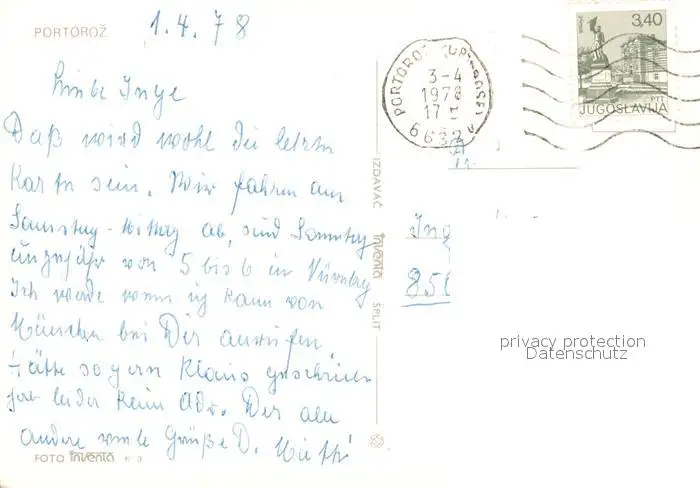 PORTOROŽ
1.4.78
Liebe Inge
Daß wird wohl die letzte
Karte sein. Wir fahren am
Samstag-Mittag ab, sind Sonntag
ungefähr von 5 bis 6 in Nürnberg
Ich werde wenn ich kann von
München bei Dir anrufen
Hätte so gern Klaus geschrieben
hab leider keine Adr. Dir alle
andere viele Grüße D.
FOTO inventa K-3
IZDAVAČ inventa SPLIT
PORTOROŽ
3-4
1978
17
3,40
JUGOSLAVIJA
PTT
Ing
850
privacy protection
Datenschutz